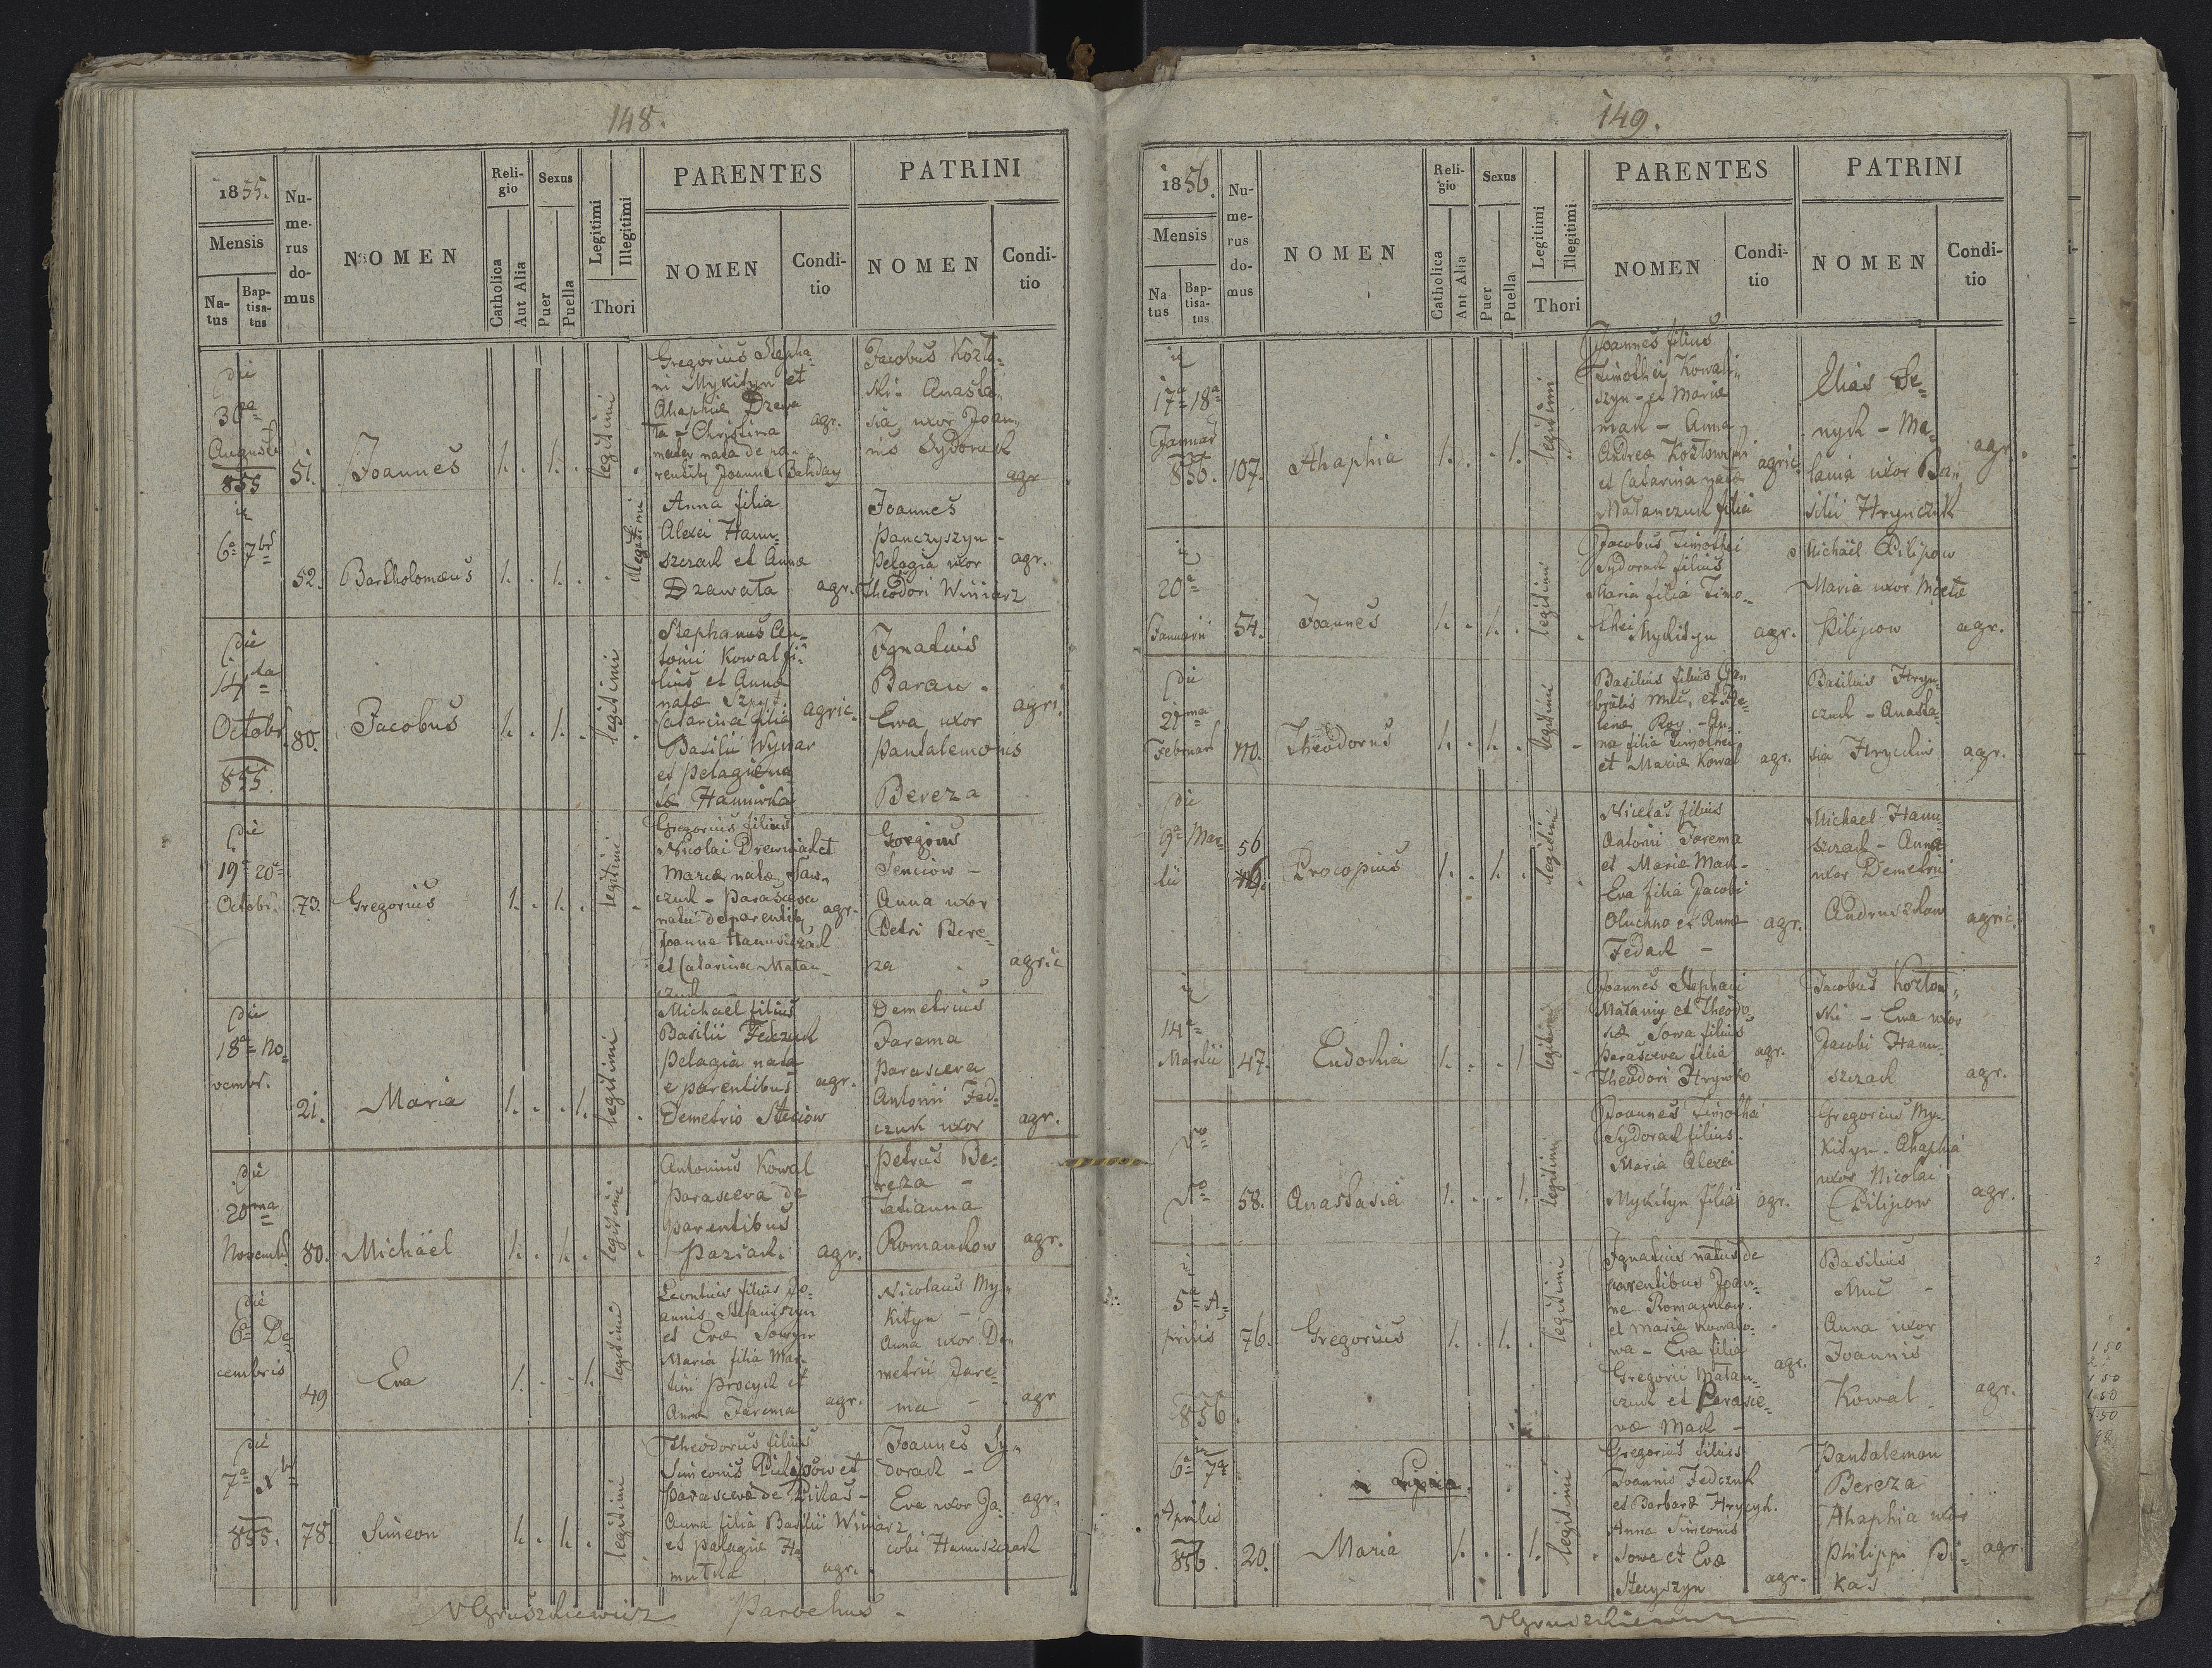 148.
1855.
Mensis
Na-
tus
Bap-
tisa-
tus
Nu-
me-
rus
do-
mus
NOMEN
Reli-
gio
Catholica
Aut Alia
Sexus
Puer
Puella
Legitimi
Illegitimi
Thori
PARENTES
NOMEN
Condi-
tio
PATRINI
NOMEN
Condi-
tio
die
30
Augusti
855
51.
Joannes
1. 1.
legitimi
Gregorius Stepha-
ni Mykityn et
Ahaphia Drewa
ta - Christina
mater nata de pa-
rentibq Joanne Bahday
agr.
Jacobus Kozło-
ski - Anasta-
sia, uxor Joan-
nis Sydorach
agr
6ª 7br
52.
Bartholomæus
1. 1.
Illegitimi
Anna filia
Alexei Hanu-
szczach et Annæ
Drawata
agr.
Joannes
Panczyszyn -
Pelagia uxor
Theodori Winiarz
agr.
die
14ta
Octobr
855.
80.
Jacobus
1. 1.
legitimi
Stephanus An-
tonii Kowal fi-
lius et Annæ
natæ Szpyt.
Catarina filia
Basilii Wynar
et Pelagiæ na
tæ Hamivka
agric.
Ignatius
Baran.
Ewa uxor
Pantalemonis
Bereza
agri.
die
19ª 20ª
Octobr.
73.
Gregorius
1. 1.
legitimi
Gregorius filius
Nicolai Drewniak et
Mariæ natæ Saw-
czuk - Parasceva
nata de parentibq
Joanne Hanuszczach
et Catarina Matan-
czuk
agr.
Gregorius
Senciow -
Anna uxor
Petri Bere-
za
agric
die
18ª No-
vembr.
21.
Maria
1. 1.
legitimi
Michaël filius
Basilii Fedczuk
Pelagia nata
e parentibus
Demetrio Steciow
agr.
Demetrius
Jarema
Parasceva
Antonii Fed-
czuk uxor
agr.
die
20ma
Novembr
80.
Michaël
1. 1.
legitimi
Antonius Kowal
Parasceva de
parentibus
Paziak.
agr.
Petrus Be-
reza -
Tatianna
Romankow
agr.
die
6ª De-
cembris
49
Eva
1. 1.
legitimi
Leontius filius Jo-
annis Stefaniszyn
et Evæ
Maria filia Mar-
tini Procyk et
Annæ Jarema
agr.
Nicolaus My-
kityn -
Anna uxor De-
metrii Jare-
ma -
agr
die
7ª Xbr
855.
78.
Simeon
1. 1.
legitimi
Theodorus filius
Simeonis Pilipow et
Parascevæ de Pikas -
Anna filia Basilii Winiarz
et Palagiæ Ha-
agr.
Joannes Sy-
dorach -
Eva uxor Ja-
cobi Hanuszczach
agr.
VGruszkiewicz Parochus -
149.
1856.
Mensis
Na
tus
Bap-
tisa-
tus
Nu-
me-
rus
do-
mus
NOMEN
Reli-
gio
Catholica
Aut Alia
Sexus
Puer
Puella
Legitimi
Illegitimi
Thori
PARENTES
NOMEN
Condi-
tio
PATRINI
NOMEN
Condi-
tio
17ª 18ª
Januar
856.
107.
Ahaphia
1. 1.
legitimi
Joannes filius
Timothei Kowali-
szyn - et Mariæ
mak - Anna
Andreæ Kozłowski
et Catarina natæ
Matanczuk filia
agric.
Elias Se-
nych - Ma-
lania uxor Ba-
silii Hrynczuk
agr.
20ª
Januarii
54.
Joannes
1. 1.
legitimi
Jacobus Timothei
Sydorach filius
Maria filia Timo-
thei Mykityn
agr.
Michaël Pilipow
Maria uxor Nicetæ
Pilipow
agr.
die
21ma
Februar
110.
Theodorus
1. 1.
legitimi
Basilius filius Ga-
brielis Muc, et He-
lenæ Roy - An-
na filia Timothei
et Mariæ Kowal
agr.
Basilius Hryn-
czuk - Anasta-
sia Hryckiw
agr.
die
9ª Mar-
tii
56
Procopius
1. 1.
legitimi
Nicolas filius
Antonii Jarema
et Mariæ Mak -
Eva filia Jacobi
Oluchna et Annæ
Fedak -
agr.
Michael Hanu-
szczach - Anna
uxor Demetrii
Andruszkow
agric.
14ª
Martii
47.
Eudochia
1. 1
legitimi
Joannes Stephani
Matanig et Theodo-
siæ Sowa filius
Parasceva filia
Theodori Hrynko
agr.
Jacobus Kozłow-
ski - Ewa uxor
Jacobi Hanu-
szczach
agr.
58.
Anastasia
1. 1.
legitimi
Joannes Timothei
Sydorach filius.
Maria Alexei
Mykityn filia
agr.
Gregorius My-
kityn - Ahaphia
uxor Nicolai
Pilipow
agr.
5ª A-
prilis
856.
76.
Gregorius
1. 1.
legitimi
Ignatius natus de
parentibus Joan-
ne Romankow.
et Maria Kowalo-
wa - Eva filia
Gregorii Matan-
czuk et Parasce-
væ Mak -
agr.
Basilius
Muc -
Anna uxor
Joannis
Kowal -
agr.
6ª 7ª
Aprilis
856.
in Lipica
20.
Maria
1. 1.
legitimi
Gregorius filius
Joannis Fedczuk
et Barbaræ Hrycyk.
Anna Simeonis
Sowa et Evæ
Stecyszyn
agr.
Pantalemon
Bereza
Ahaphia uxor
Philippi Pi-
kas
agr.
VGruszkiewicz